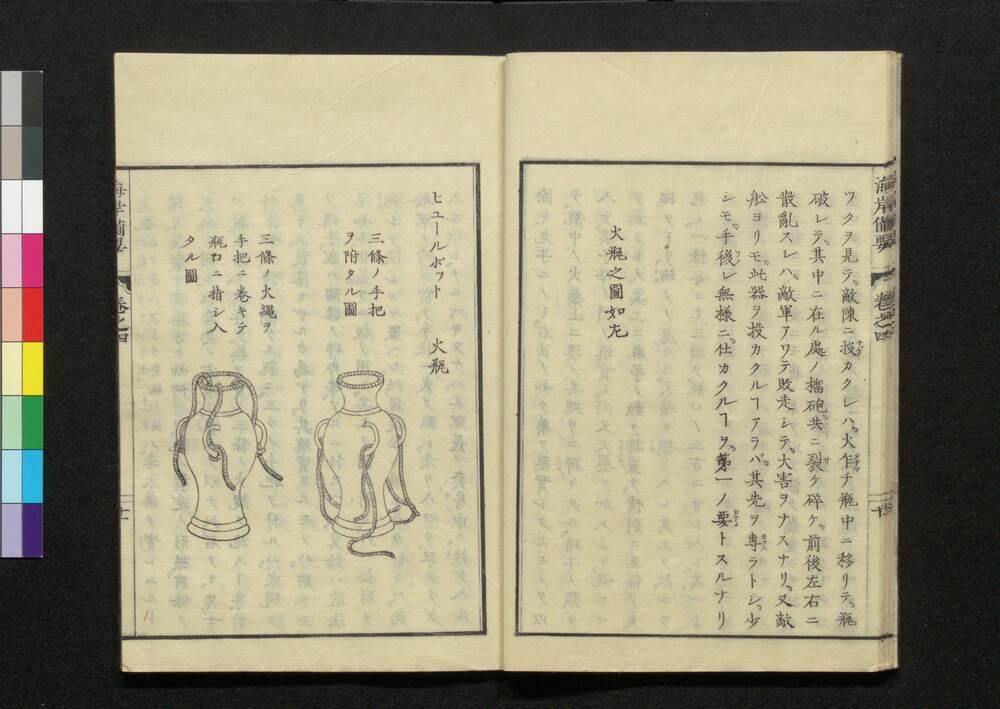 海岸備要
卷之四
ツクヲ見テ、敵陳ニ投カクレハ、火乍チ瓶中ニ移リテ、瓶
破レテ、其中ニ在ル處ノ榴砲共ニ裂ケ碎ケ、前後左右ニ
散亂スレハ、敵軍アワテ敗走シテ、大害ヲナスナリ、又敵
舩ヨリモ、此器ヲ投カクルヿアラバ、其先ヲ專ラトシ、少
シモ手後レ無樣ニ仕カクルヿヲ、第一ノ要トスルナリ
火瓶之圖如左
ヒュールポット 火瓶
三條ノ手把
ヲ附タル圖
三條ノ火縄ヲ
手把ニ卷キテ
瓶口ニ指シ入
タル圖
卷之四